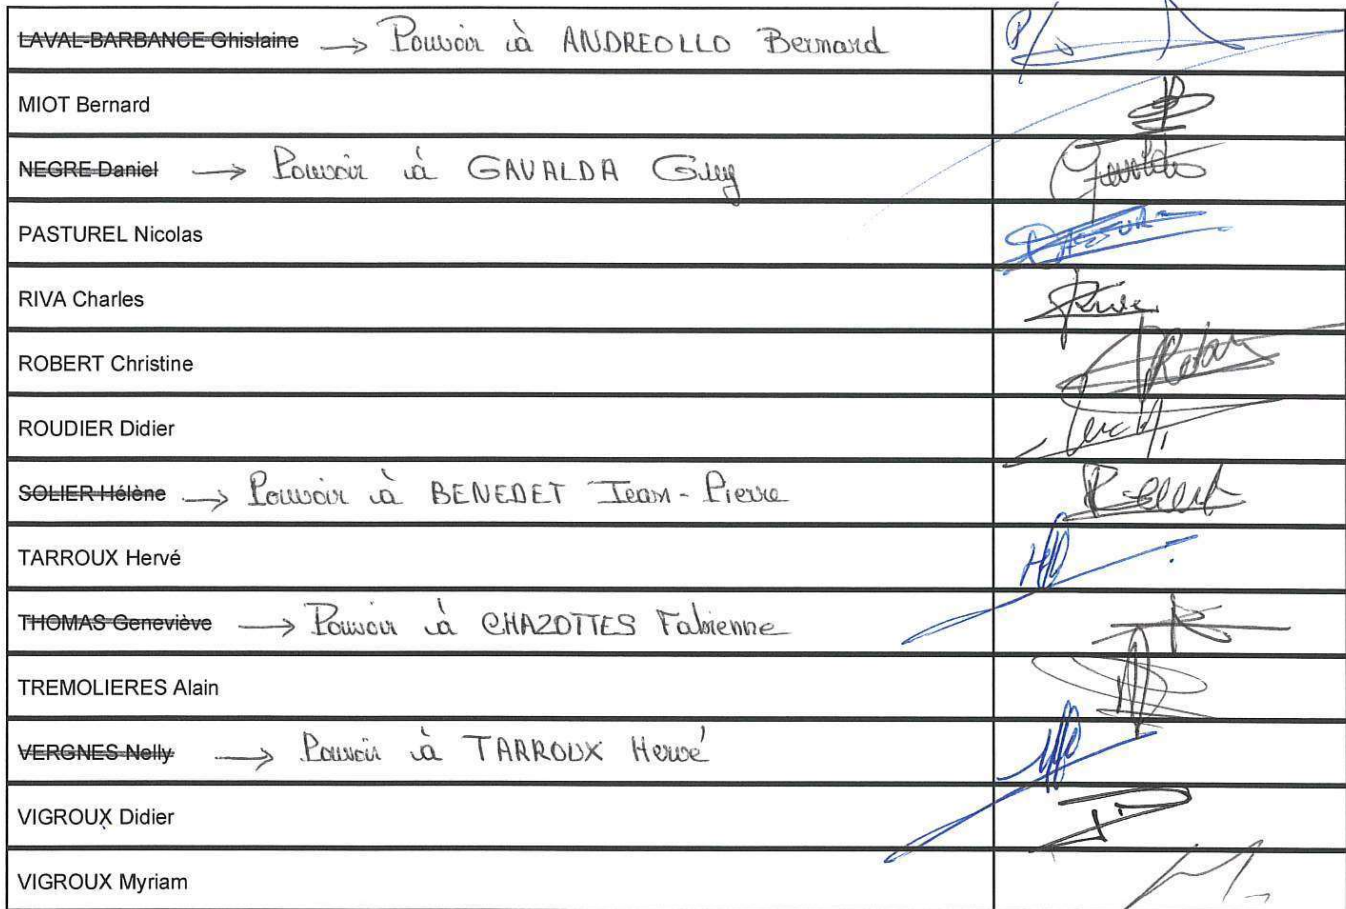 LAVAL-BARBANCE Ghislaine → Pouvoir à ANDREOLLO Bernard
P/
MIOT Bernard
NEGRE Daniel → Pouvoir à GAVALDA Guy
PASTUREL Nicolas
RIVA Charles
Riva
ROBERT Christine
ROUDIER Didier
SOLIER Hélène → Pouvoir à BENEDET Jean-Pierre
TARROUX Hervé
THOMAS Geneviève → Pouvoir à CHAZOTTES Fabienne
TREMOLIERES Alain
VERGNES Nelly → Pouvoir à TARROUX Hervé
VIGROUX Didier
VIGROUX Myriam